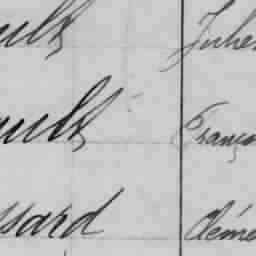 ult Julie
ault Franço
ssard Cléme